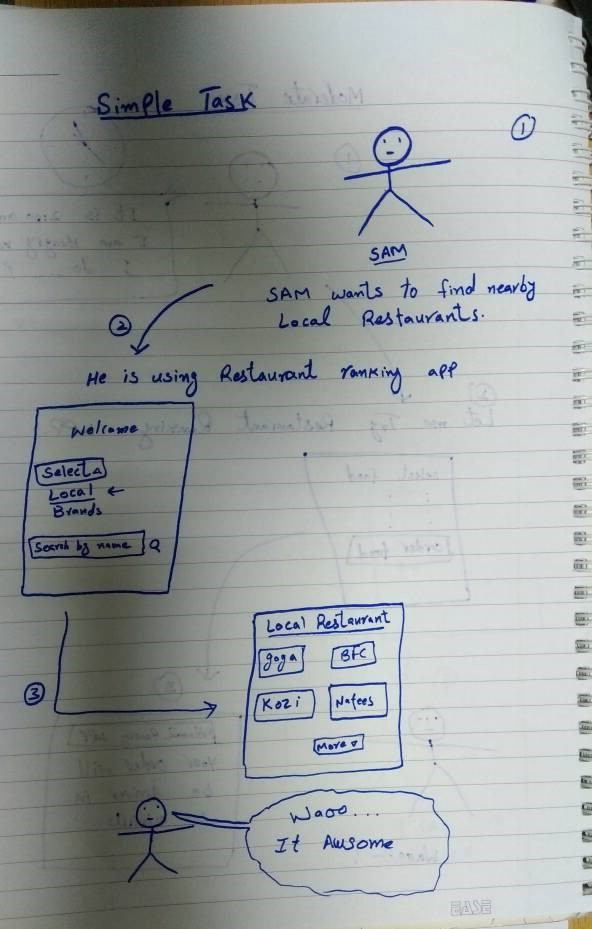 Simple Task
1
SAM
SAM wants to find nearby
Local Restaurants.
2
He is using Restaurant ranking app
Welcome
Select
Local
Brands
Search by name
3
Local Restaurant
goga
BFC
Kozi
Nafees
More
Waoo...
It Awsome
EASE